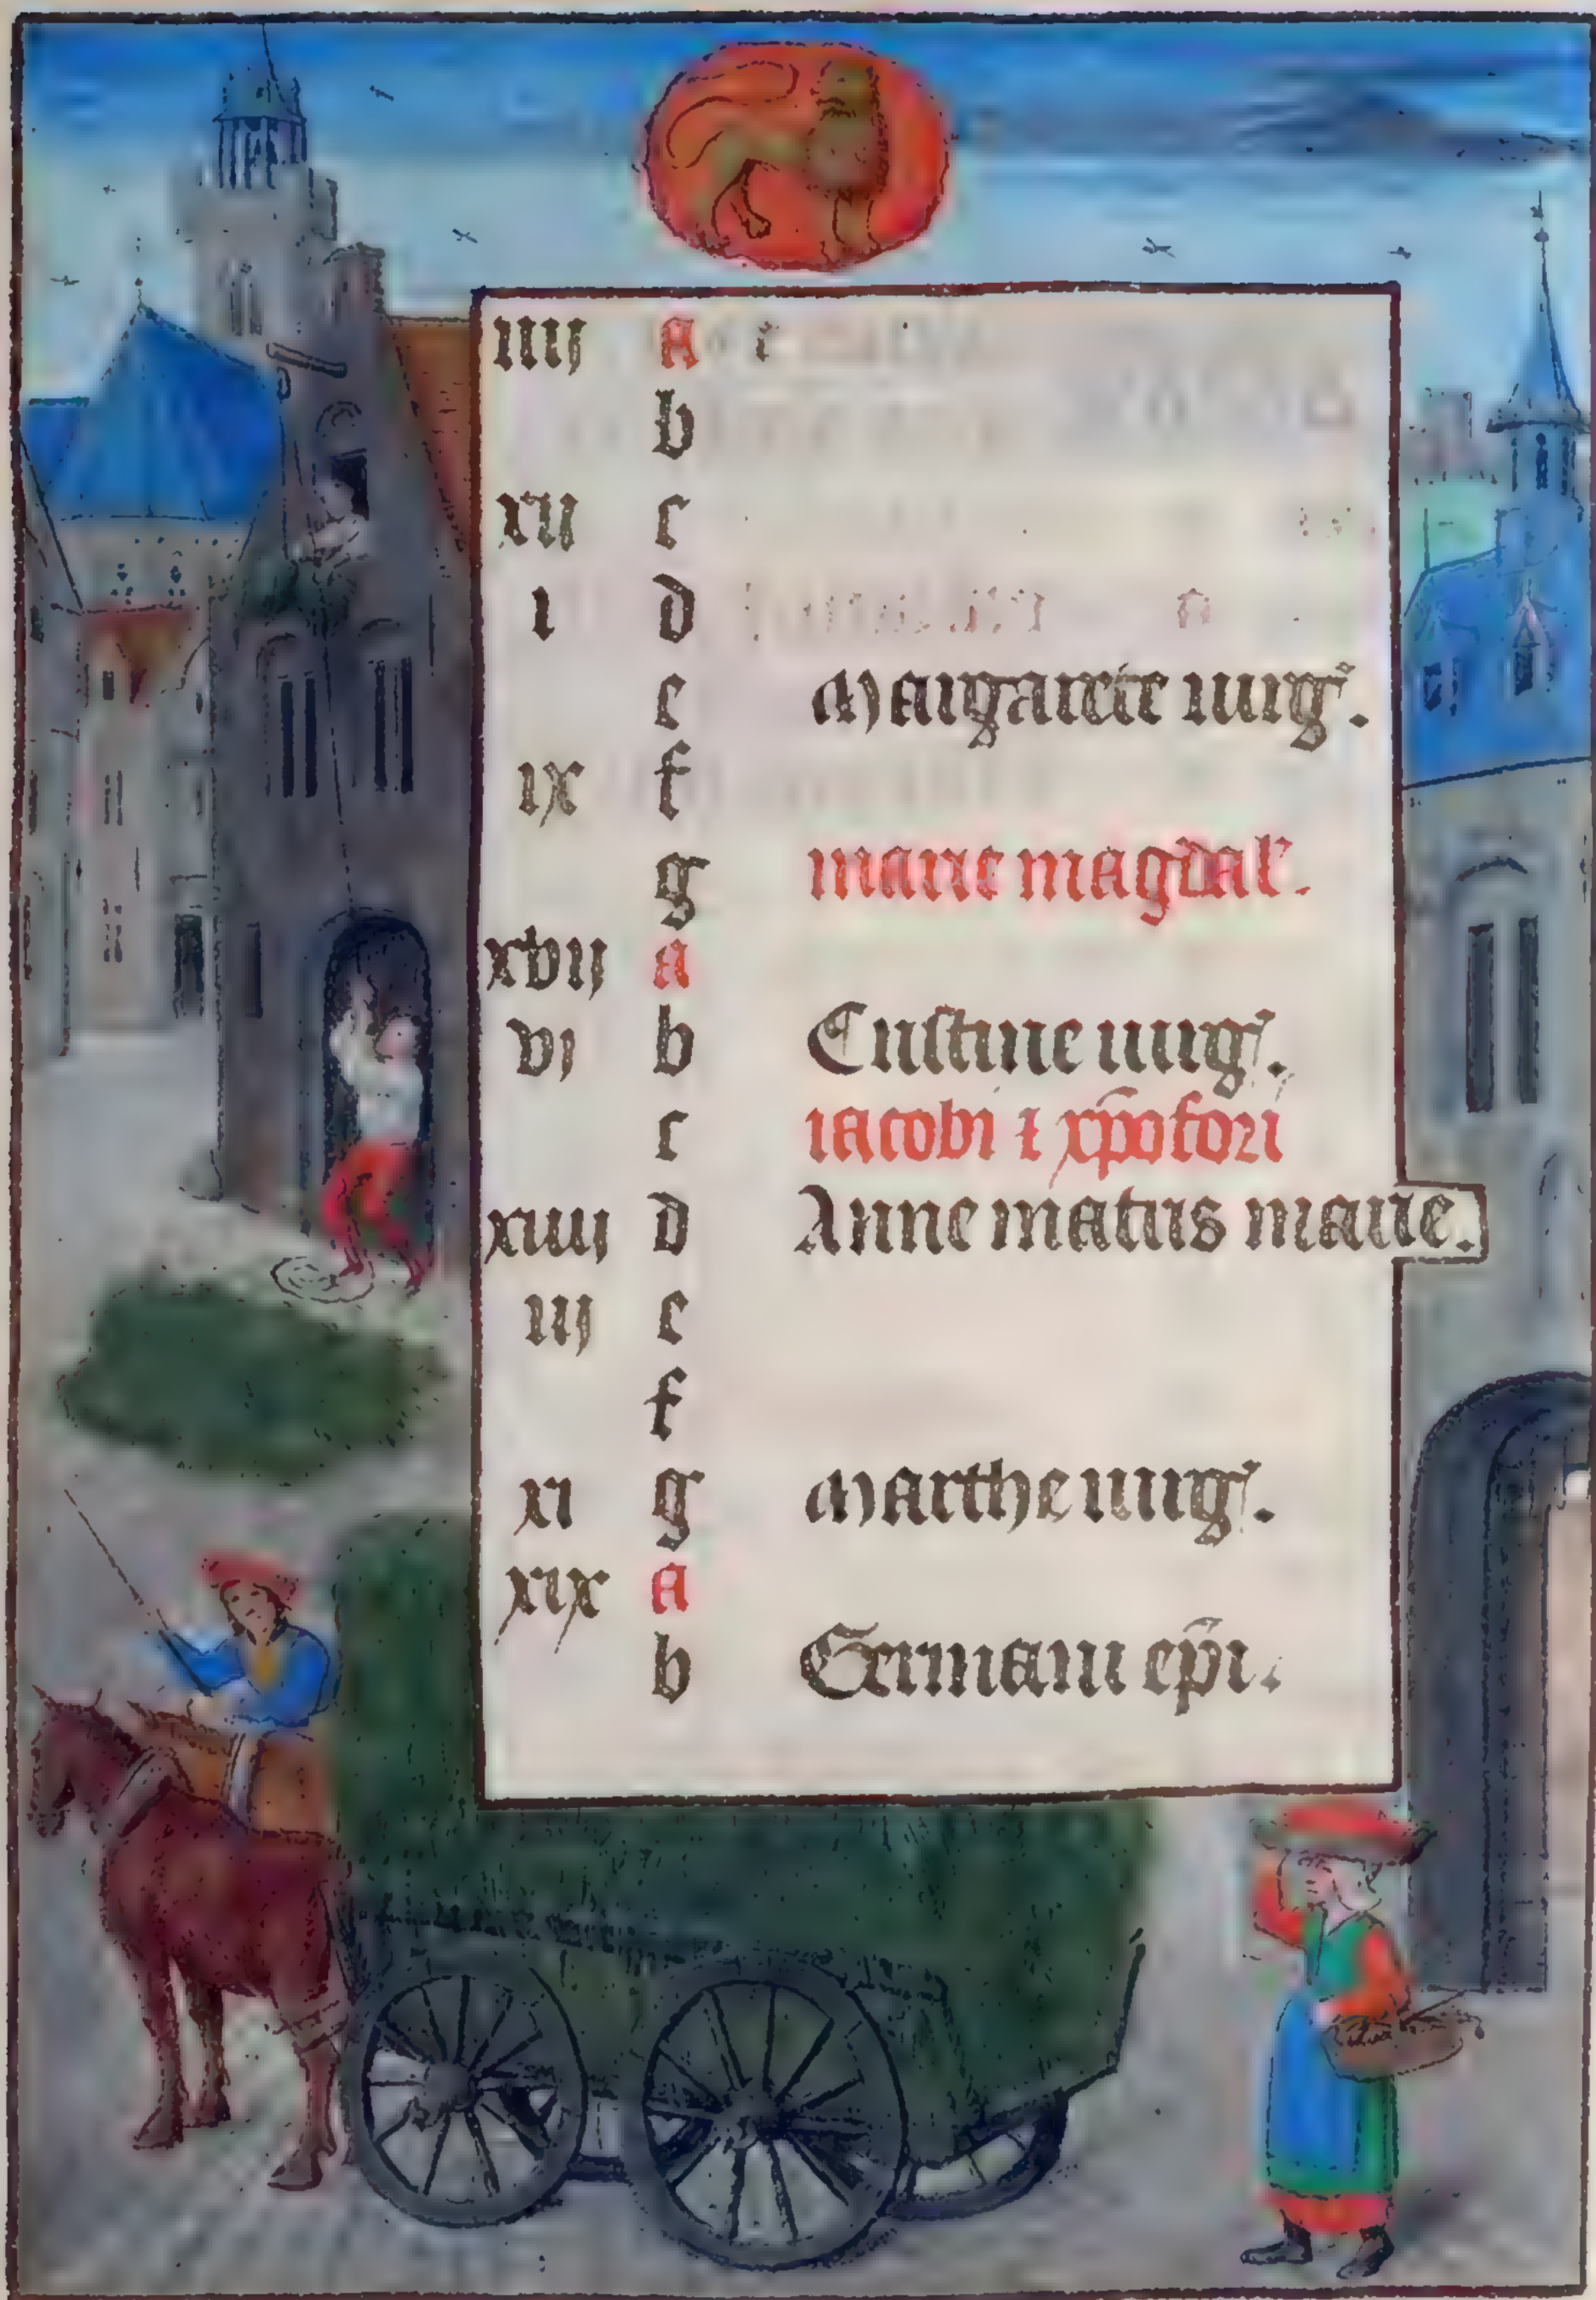 iiij a
b
xii c
i d
e Margarete uirg.
ix f
g marie magdal.
xvij a
vi b Cristine uirg.
c iacobi ⁊ xp̄ofori
xiiij d Anne matris marie.
iij e
f
xi g Marthe uirg.
xix a
b Germani ep̄i.